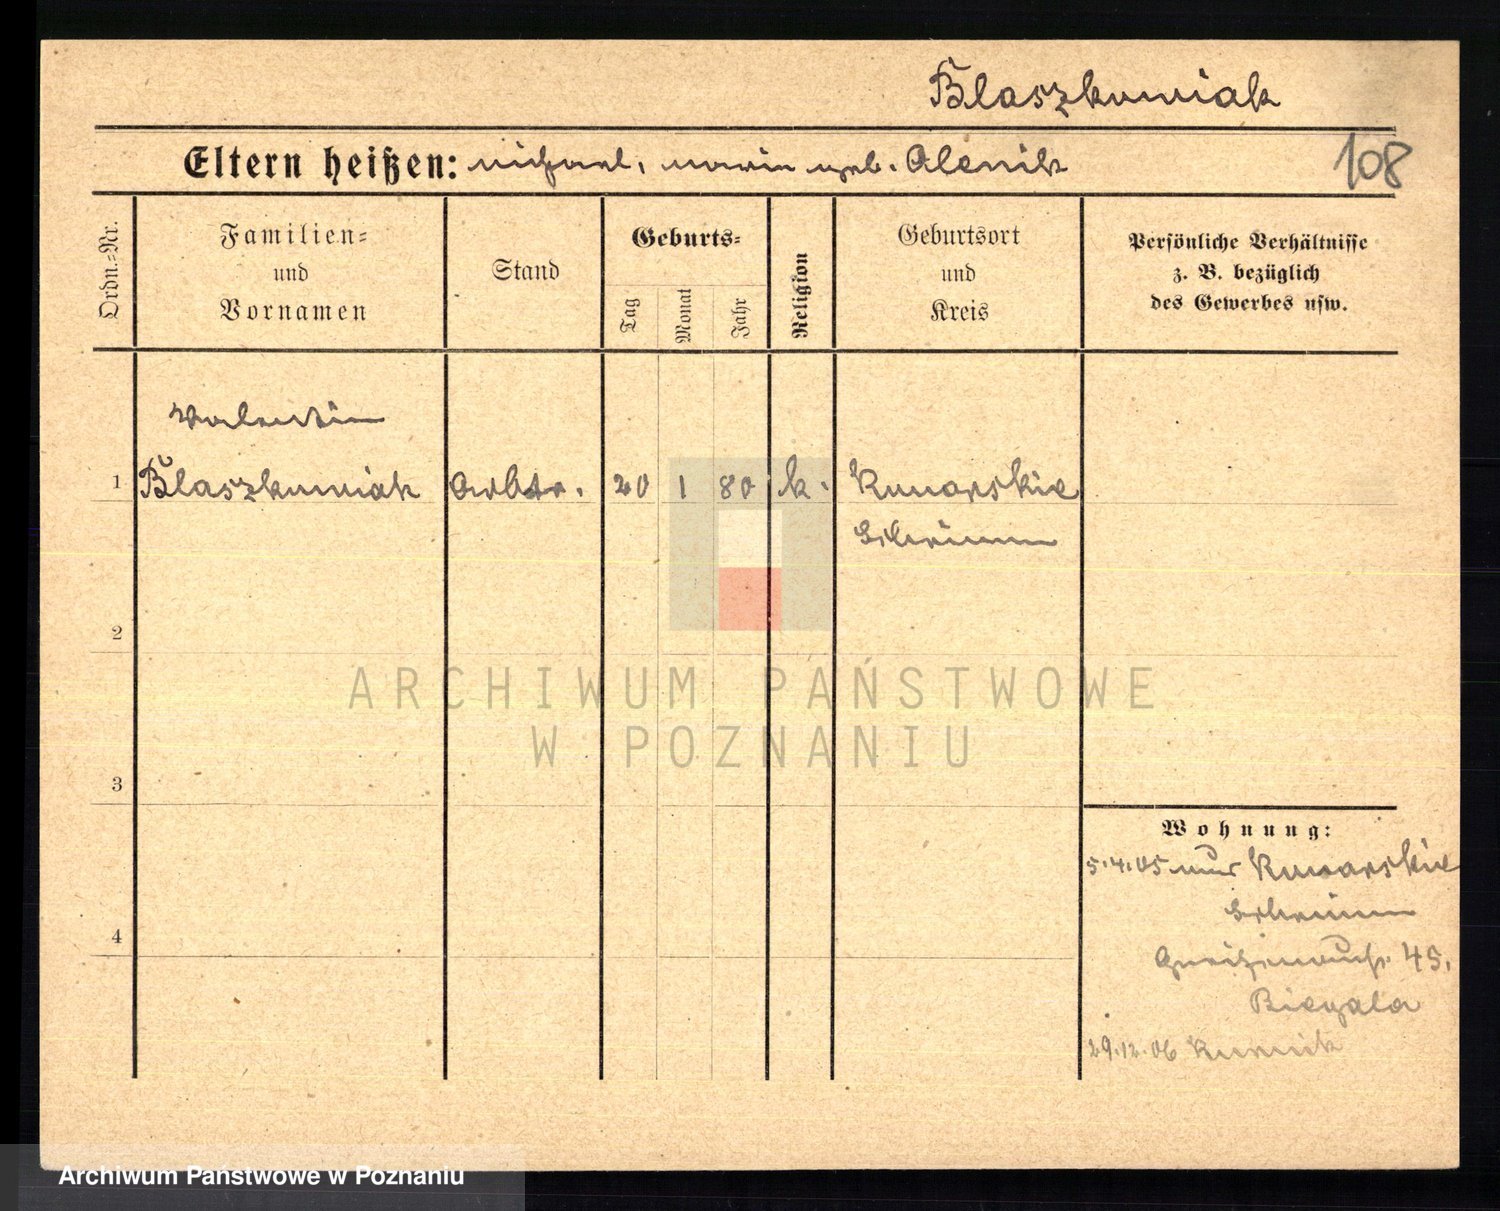 Blaszkowiak
Eltern heißen: Michael, Marie geb. Olenik
108
Ordn.=Nr.
Familien=
und
Vornamen
Stand
Geburts=
Tag
Monat
Jahr
Religion
Geburtsort
und
Kreis
Persönliche Verhältnisse
z. B. bezüglich
des Gewerbes usw.
Valentin
1 Blaszkowiak Arbtr. 20 1 80 k. Konarskie
Schrimm
2
3
4
Wohnung:
5.4.05 aus Konarskie
Schrimm
45.
Biegala
29.12.06 Kurnik
ARCHIWUM PAŃSTWOWE
W POZNANIU
Archiwum Państwowe w Poznaniu